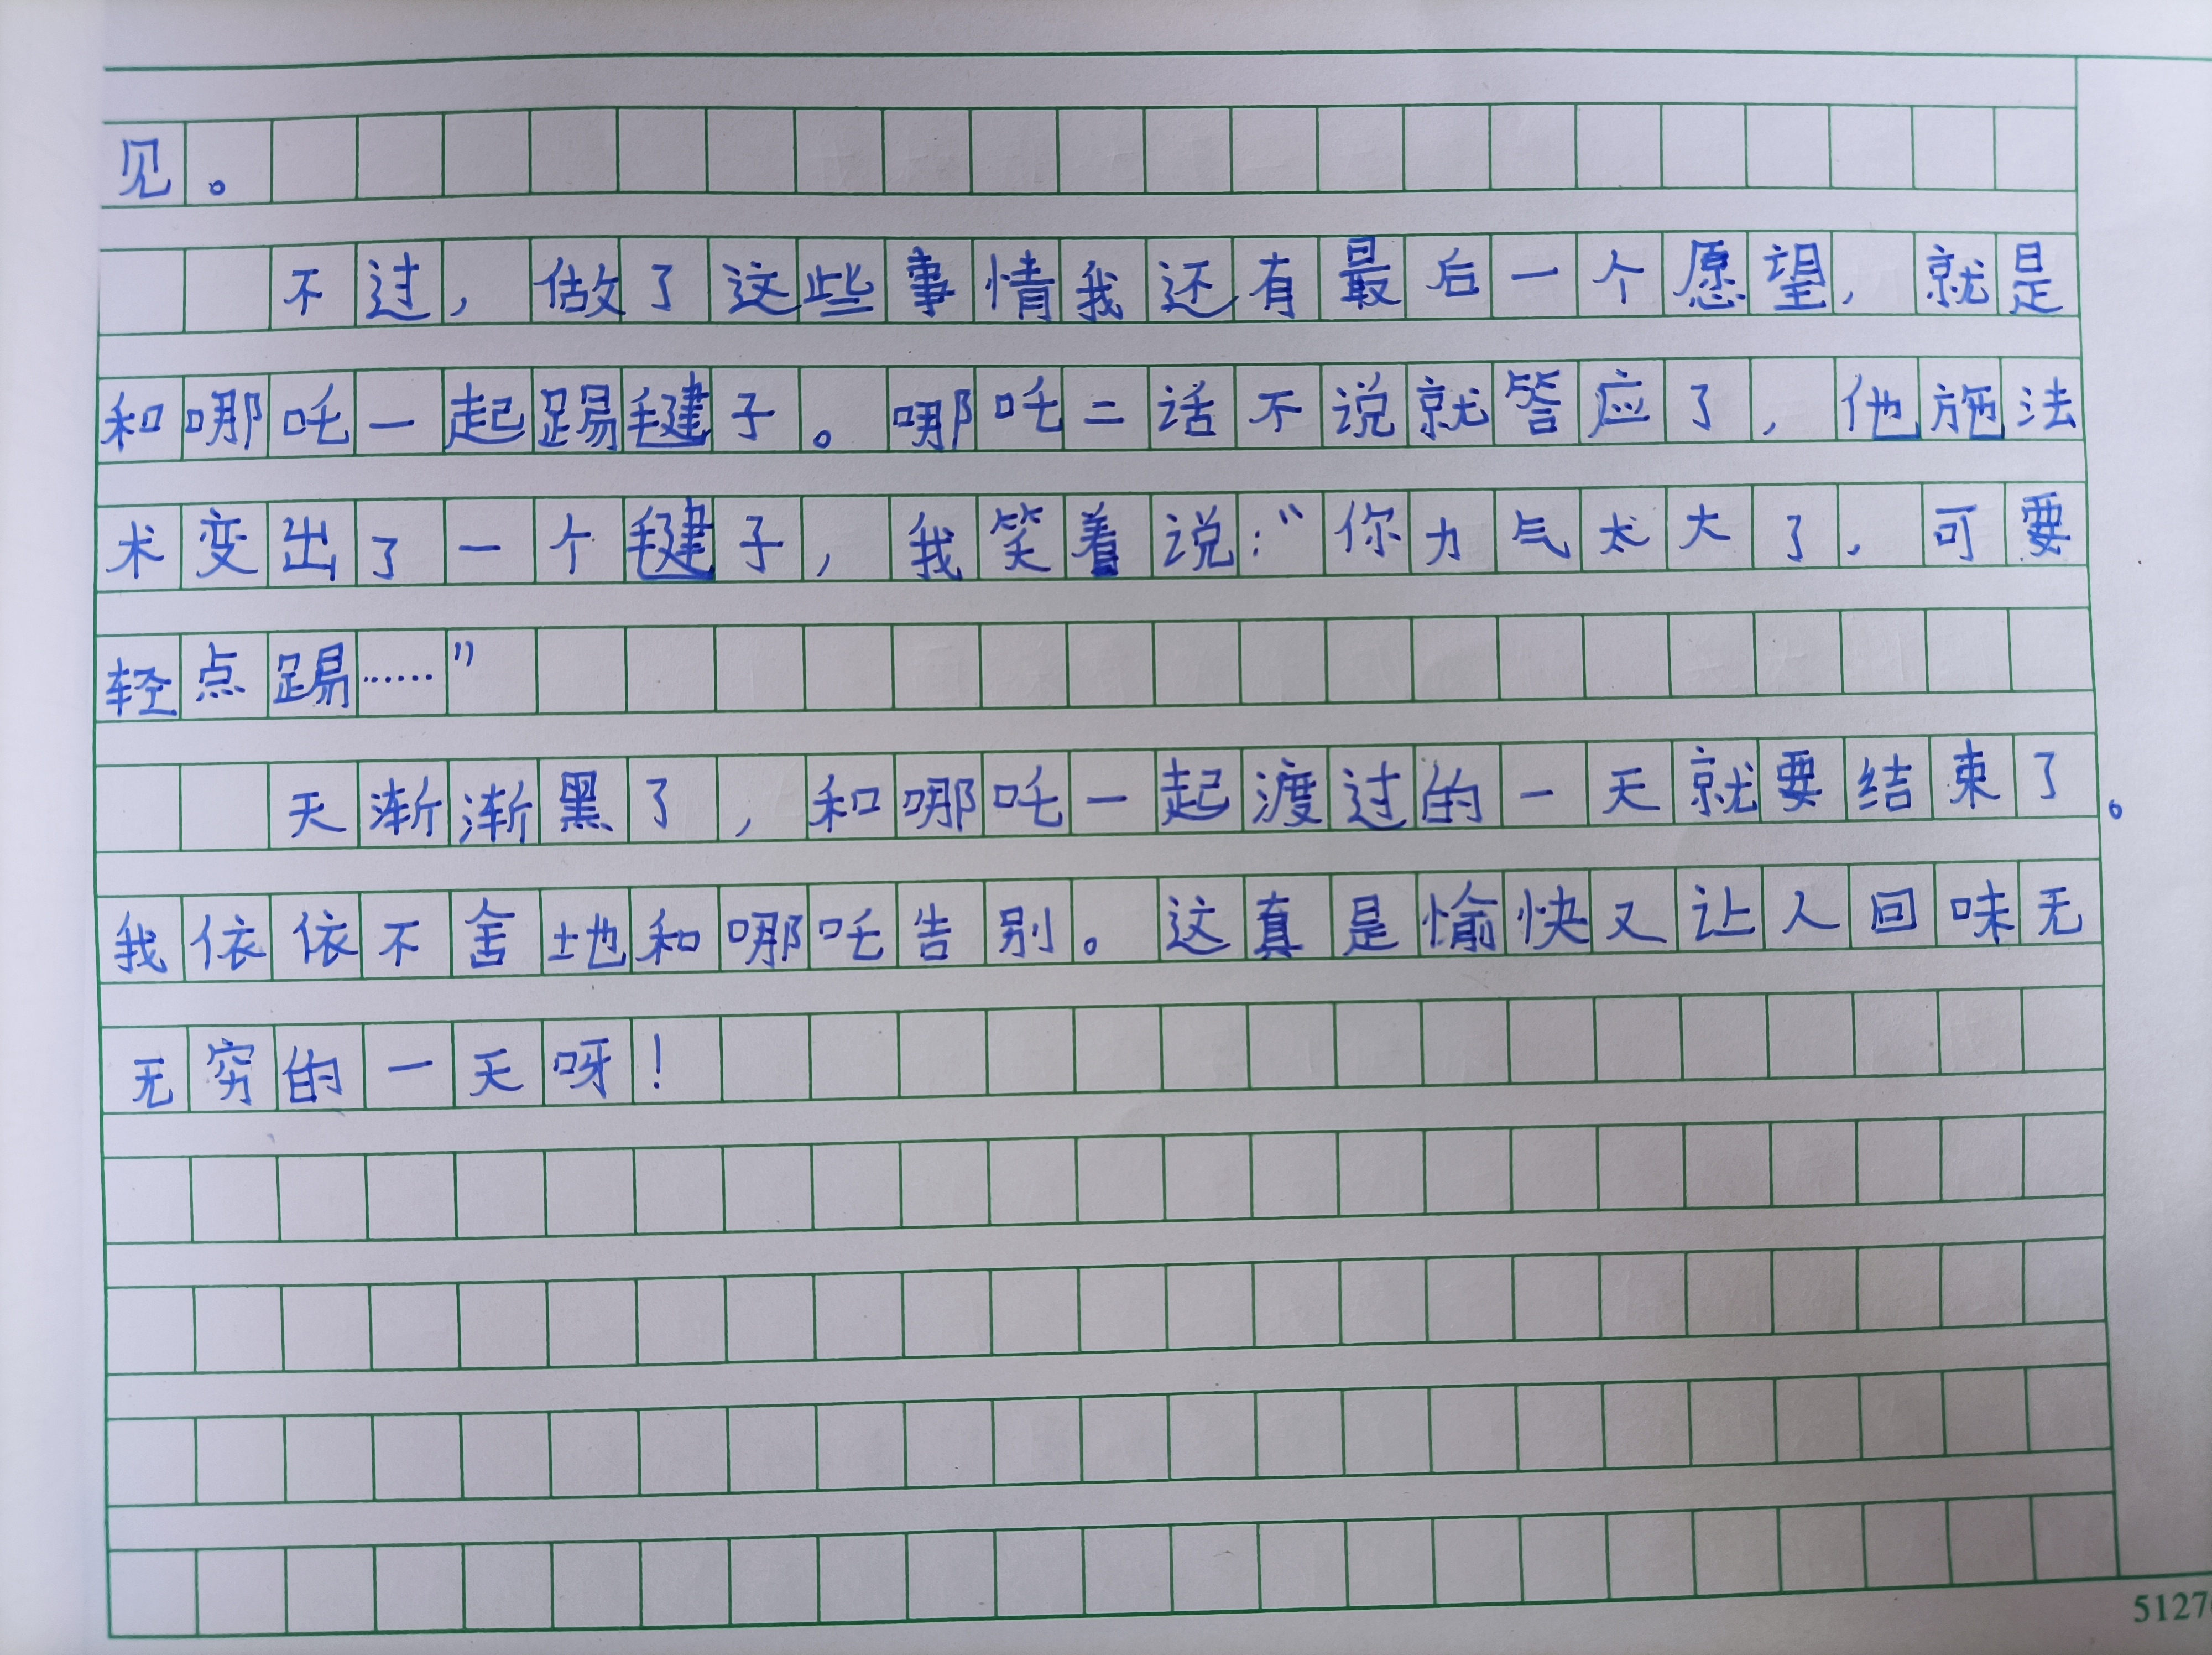 见。
不过，做了这些事情我还有最后一个愿望，就是
和哪吒一起踢毽子。哪吒二话不说就答应了，他施法
术变出了一个毽子，我笑着说：“你力气太大了，可要
轻点踢……”
天渐渐黑了，和哪吒一起渡过的一天就要结束了。
我依依不舍地和哪吒告别。这真是愉快又让人回味无
无穷的一天呀！
5127